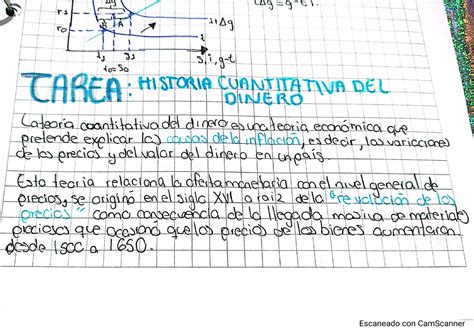 r₁
r₀
B
A
i₁
i₀=s₀
s+Δg
s,i,g-t
TAREA: HISTORIA CUANTITATIVA DEL
DINERO
La teoría cuantitativa del dinero es una teoría económica que
pretende explicar las causas de la inflación, es decir, las variaciones
de los precios y del valor del dinero en un país.
Esta teoría relaciona la oferta monetaria con el nivel general de
precios, se originó en el siglo XVI a raíz de la "revolución de los
precios" como consecuencia de la llegada masiva de materiales
preciosos que ocasionó que los precios de los bienes aumentaran
desde 1500 a 1650.
Escaneado con CamScanner